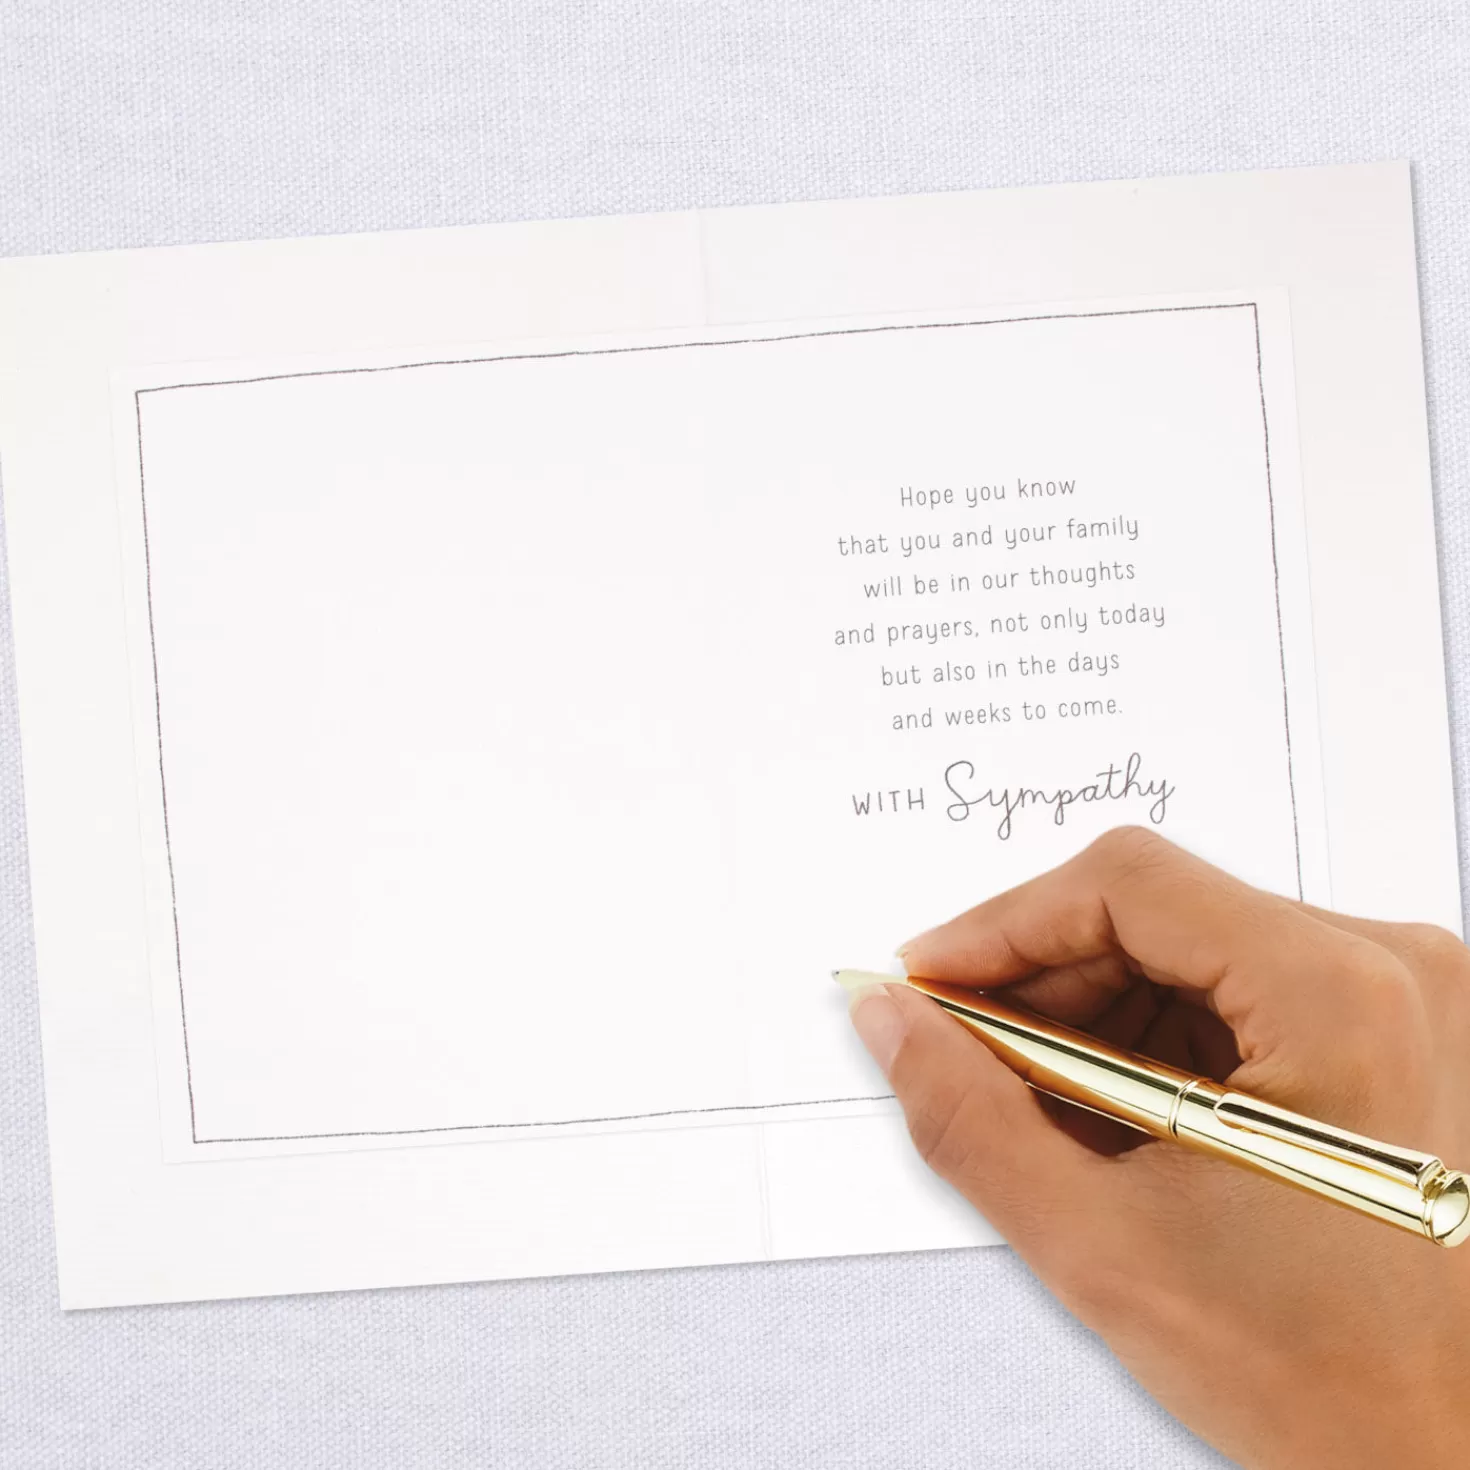 Hope you know
that you and your family
will be in our thoughts
and prayers, not only today
but also in the days
and weeks to come.
WITH Sympathy